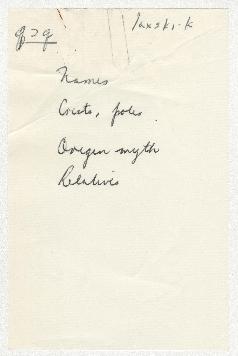 laxski·k
Names
Crests, poles.
Origin myth
Relatives